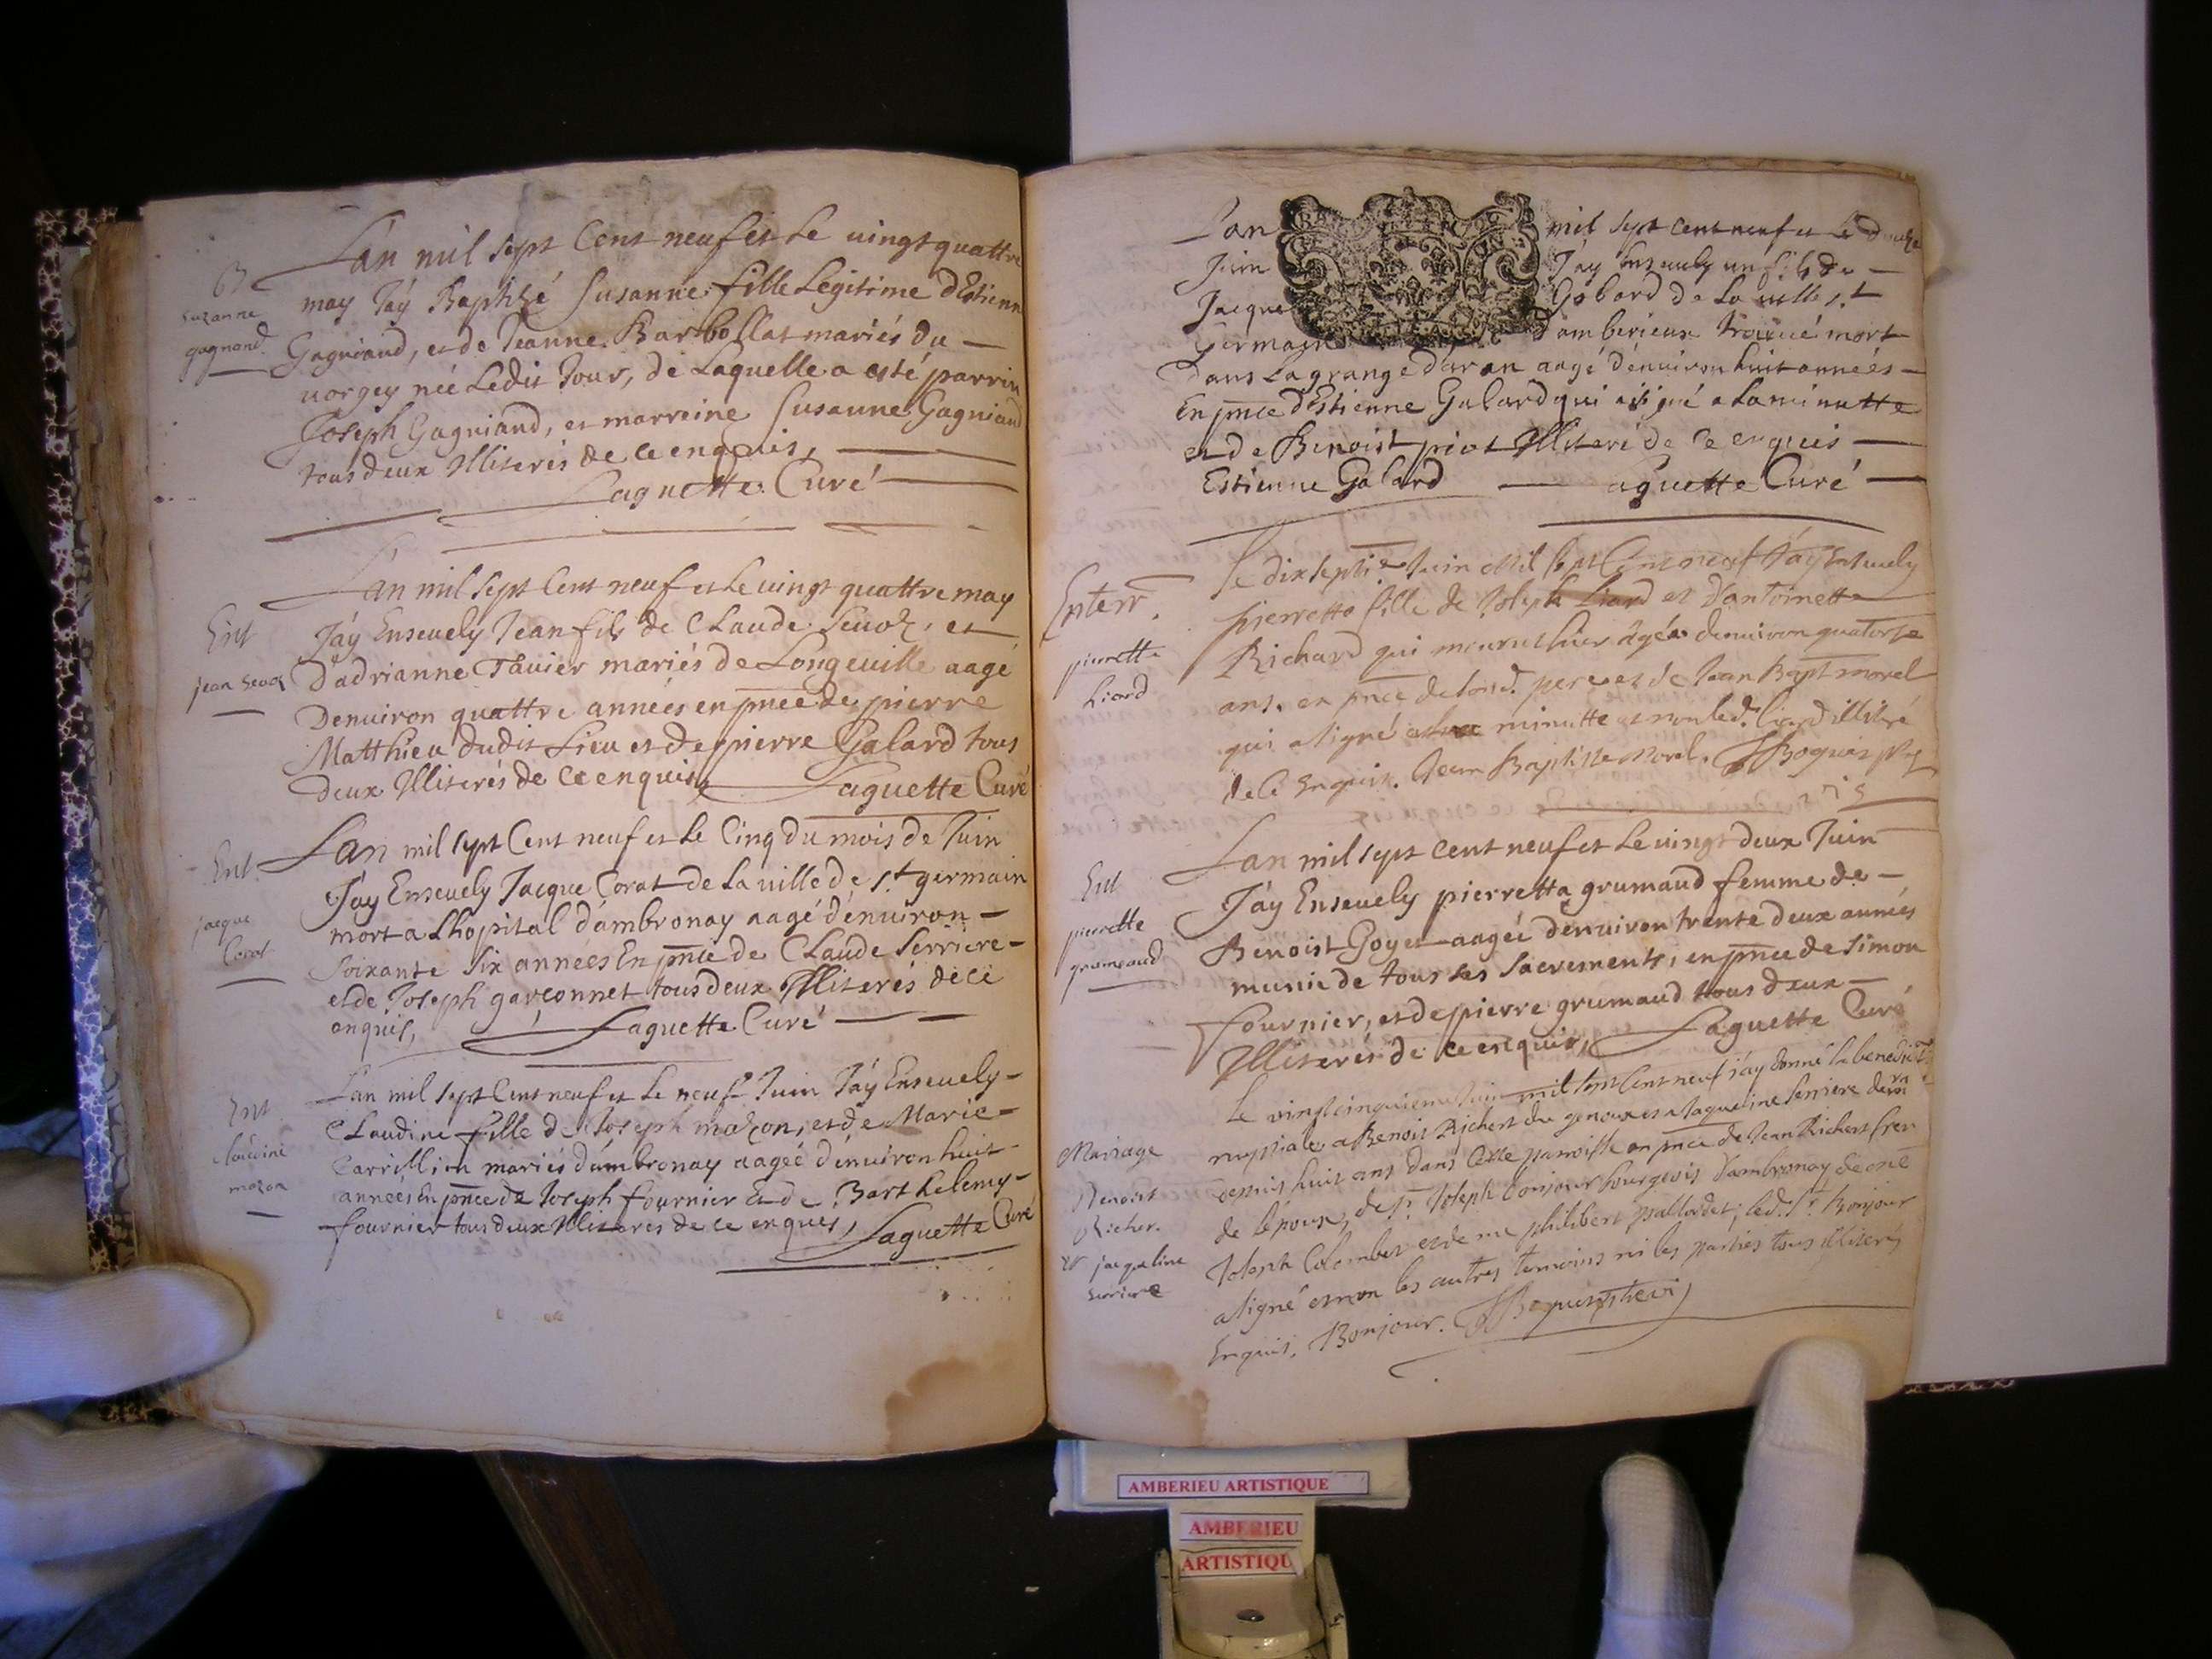 L'an mil sept Cent neuf et le vingt quattre
B
suzanne
gagnand
may J'ay Baptizé Susanne fille Legitime d'Estienn
Gagniand, et de Jeanne Barbollat mariés du
vorgey née Ledit Jour, de Laquelle a esté parrin
Joseph Gagniand, et marreine Susanne Gagniand
tous deux Illiterés de ce enquis,
Laguette Curé
L'an mil sept Cent neuf et Le vingt quattre may
Ent
jean
J'ay Ensevely Jean fils de Claude et
d'adrianne Tavier mariés de Longeville aagé
Denviron quattre années en pnce de pierre
Matthieu dudit Lieu et de pierre Galard tous
deux Illiterés de ce enquis, Laguette Curé
L'an mil sept Cent neuf et Le Cinq du mois de Juin
Ent
jacque
Corat
J'ay Ensevely Jacque Corat de La ville de st germain
mort a Lhopital d'ambronay aagé d'environ
soixante six années En pnce de Claude Serriere
et de Joseph garçonnet tous deux Illiterés de ce
enquis, Laguette Curé
L'an mil sept Cent neuf et Le neuf Juin J'ay Ensevely
Ent
claudine
mazon
Claudine fille de Joseph mazon, et de Marie
Carrillion mariés d'ambronay aageé d'environ huit
années En pnce de Joseph fournier Et de Barthelemy
fournier tous deux Illiterés de ce enquis, Laguette Curé
L'an mil sept cent neuf et Le douze
Juin J'ay Ensevely un fils de
Jacque Gobard de La ville st
Germain d'amberieux trouvé mort
Dans La grange d'aran aagé d'environ huit années
En pnce d'Estienne Galard qui a signé a La minutte
et de Benoist Illiteré de ce enquis
Estienne Galard Laguette Curé
Le dixseptie Juin Mil sept Cent neuf J'ay Ensevely
Enterr.
pierrette
Liard
pierrette fille de Joseph Liard et d'antoinette
Richard qui mourut hier âgée denviron quatorze
ans, en pnce de sond. pere et de Jean Bapt morel
qui a signé minutte et non led. Liard illiteré
de ce Enquis. Jean Baptiste Morel.
L'an mil sept cent neuf et Le vingt deux Juin
Ent
pierrette
grumaud
J'ay Ensevely pierretta grumaud femme de
Benoist Goyet aageé denviron trente deux années
munie de tous ses sacrements, en pnce de simon
fournier, et de pierre grumaud tous deux
Illiterés de ce enquis, Laguette Curé
Le vingtcinquieme Juin mil sept Cent neuf j'ay donné la benedict
Mariage
Benoist
Richer.
et jacqueline
serriere
nuptiale a Benoit Richert du genoux et a Jaqueline Serriere dem
depuis huit ans dans Cette parroisse en pnce de Jean Richert frer
de l'epoux, de sr. Joseph Bonjour bourgeois d'ambronay
Joseph Colombet et de me philibert led. sr. Bonjour
a signé et non les autres temoins ni les parties tous illiterés
Enquis. Bonjour.
AMBERIEU ARTISTIQUE
AMBERIEU
ARTISTIQU